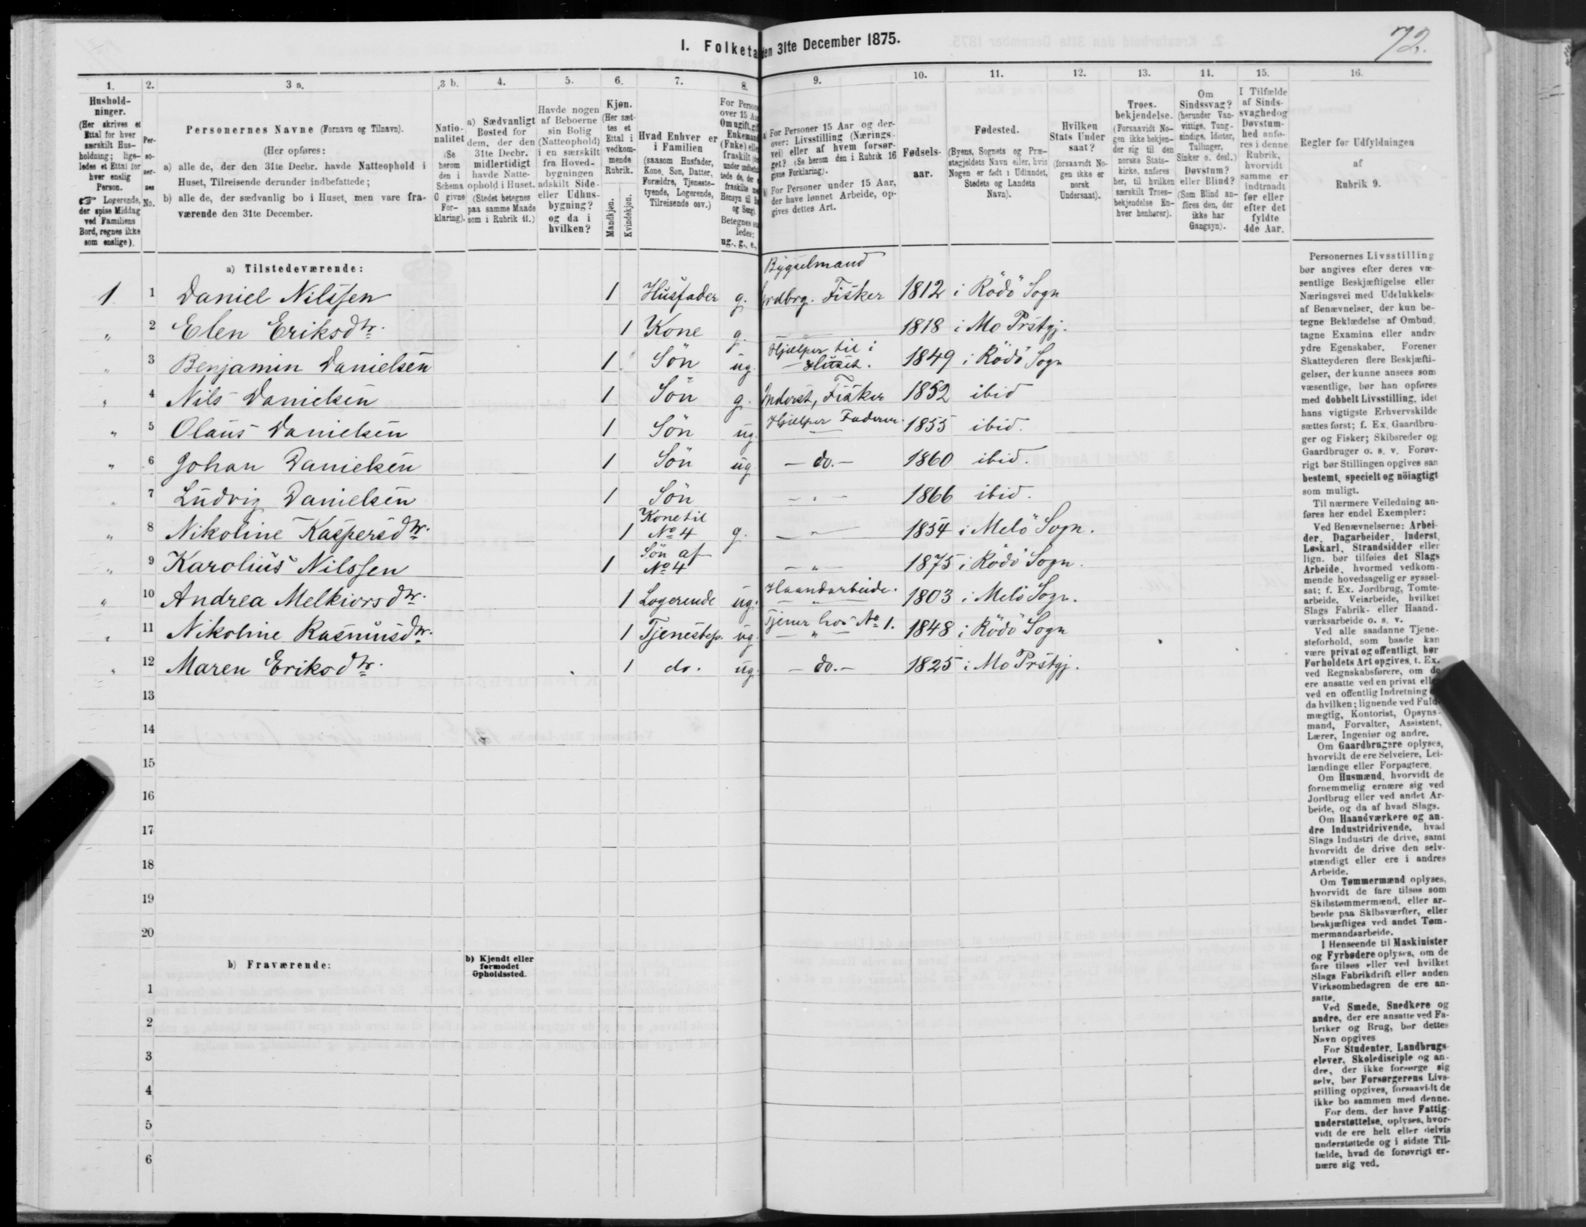 72.
I. Folketæ
en 31te December 1875.
1.
Hushold-
ninger.
(Her skrives et
Ettal for hver
særskilt Hus-
holdning; lige-
ledes et Ettal for
hver enslig
Person.
☞ Logerende,
der spise Middag
ved Familiens
Bord, regnes ikke
som enslige).
2.
Per-
so-
ner-
nes
No.
3 a.
Personernes Navne (Fornavn og Tilnavn).
(Her opføres:
a) alle de, der den 31te Decbr. havde Natteophold i
Huset, Tilreisende derunder indbefattede;
b) alle de, der sædvanlig bo i Huset, men vare fra-
værende den 31te December.
3 b.
Natio-
nalitet
(Se
herom
den i
Schema
0 givne
For-
klaring).
4.
a) Sædvanligt
Bosted for
dem, der den
31te Decbr.
midlertidigt
havde Natte-
ophold i Huset.
(Stedet betegnes
paa samme Maade
som i Rubrik 11.)
5.
Havde nogen
af Beboerne
sin Bolig
(Natteophold)
i en særskilt
fra Hoved-
bygningen
adskilt Side-
eller Udhus-
bygning?
og da i
hvilken?
6.
Kjøn.
(Her sæt-
tes et
Ettal i
vedkom-
mende
Rubrik.
Mandkjøn.
Kvindekjøn.
7.
Hvad Enhver er
i Familien
(saasom Husfader,
Kone, Søn, Datter,
Forældre, Tjeneste-
tyende, Logerende,
Tilreisende osv.)
8.
For Person
over 15 Aa
Om ugift, gift
Enkemand
(Enke) eller
fraskilt
Betegnes saa
ledes:
ug., g., e.,
9.
a) For Personer 15 Aar og der-
over: Livsstilling (Nærings-
vei) eller af hvem forsør-
get? (Se herom den i Rubrik 16
givne Forklaring).
b) For Personer under 15 Aar,
der have lønnet Arbeide, op-
gives dettes Art.
10.
Fødsels-
aar.
11.
Fødested.
(Byens, Sognets og Præ-
stegjeldets Navn eller, hvis
Nogen er født i Udlandet,
Stedets og Landets
Navn).
12.
Hvilken
Stats Under
saat?
(forsaavidt No-
gen ikke er
norsk
Undersaat).
13.
Troes-
bekjendelse.
(Forsaavidt No-
gen ikke bekjen-
der sig til den
norske Stats-
kirke, anføres
her, til hvilken
særskilt Troes-
bekjendelse En-
hver henhører).
14.
Om
Sindssvag?
(herunder Van-
vittige, Tung-
sindige, Idioter,
Tullinger,
Sinker o. desl.)
Døvstum?
eller Blind?
(Som Blind an-
føres den, der
ikke har
Gangsyn).
15.
I Tilfælde
af Sinds-
svaghed og
Døvstum-
hed anfø-
res i denne
Rubrik,
hvorvidt
samme er
indtraadt
før eller
efter det
fyldte
4de Aar.
16.
Regler for Udfyldningen
af
Rubrik 9.
a) Tilstedeværende:
Bygselmand
1 1 Daniel Nilssen 1 Husfader g. Jordbrg. Fisker 1812 i Rödö Sogn
" 2 Elen Eriksdtr. 1 Kone g. — — 1818 i Mo Prstgj.
" 3 Benjamin Danielsen 1 Sön ug. Hjælper til i Huset. 1849 i Rödö Sogn
" 4 Nils Danielsen 1 Sön g. Inderst, Fisker 1852 ibid
" 5 Olaus Danielsen 1 Sön ug. Hjælper Faderen. 1855 ibid.
" 6 Johan Danielsen 1 Sön ug — do. — 1860 ibid.
" 7 Ludvig Danielsen 1 Sön — " — 1866 ibid.
" 8 Nikoline Kaspersdtr. 1 Kone til No 4 g. — " — 1854 i Melö Sogn.
" 9 Karolius Nilssen 1 Sön af No 4 — " — 1875 i Rödö Sogn.
" 10 Andrea Melkiorsdtr. 1 Logerende ug. Haandarbeide. 1803 i Melö Sogn.
" 11 Nikoline Rasmusdtr. 1 Tjenestep. ug. Tjener hos No 1. 1848 i Rödö Sogn
" 12 Maren Eriksdtr. 1 do. ug. — do. — 1825 i Mo Prstgj.
13
14
15
16
17
18
19
20
b) Fraværende:
b) Kjendt eller
formodet
Opholdssted.
1
2
3
4
5
6
Personernes Livsstilling
bør angives efter deres væ-
sentlige Beskjæftigelse eller
Næringsvei med Udelukkelse
af Benævnelser, der kun be-
tegne Beklædelse af Ombud,
tagne Examina eller andre
ydre Egenskaber. Forener
Skatteyderen flere Beskjæfti-
gelser, der kunne ansees som
væsentlige, bør han opføres
med dobbelt Livsstilling, idet
hans vigtigste Erhvervskilde
sættes først; f. Ex. Gaardbru-
ger og Fisker; Skibsreder og
Gaardbruger o. s. v. Forøv-
rigt bør Stillingen opgives saa
bestemt, specielt og nöiagtigt
som muligt.
Til nærmere Veiledning an-
føres her endel Exempler:
Ved Benævnelserne: Arbei-
der, Dagarbeider, Inderst,
Løskarl, Strandsidder eller
lign. bør tilføies det Slags
Arbeide, hvormed vedkom-
mende hovedsagelig er syssel-
sat; f. Ex. Jordbrug, Tomte-
arbeide, Veiarbeide, hvilket
Slags Fabrik- eller Haand-
værksarbeide o. s. v.
Ved alle saadanne Tjene-
steforhold, som baade kan
være privat og offentligt, bør
Forholdets Art opgives, t. Ex.
ved Regnskabsførere, om de
ere ansatte ved en privat eller
ved en offentlig Indretning og
da hvilken; lignende ved Fuld-
mægtig, Kontorist, Opsyns-
mand, Forvalter, Assistent,
Lærer, Ingeniør og andre.
Om Gaardbrugere oplyses,
hvorvidt de ere Selveiere, Lei-
lændinge eller Forpagtere.
Om Husmænd, hvorvidt de
fornemmelig ernære sig ved
Jordbrug eller ved andet Ar-
beide, og da af hvad Slags.
Om Haandværkere og an-
dre Industridrivende, hvad
Slags Industri de drive, samt
hvorvidt de drive den selv-
stændigt eller ere i andres
Arbeide.
Om Tømmermænd oplyses,
hvorvidt de fare tilsøs som
Skibstømmermænd, eller ar-
beide paa Skibsværfter, eller
beskjæftiges ved andet Tøm-
mermandsarbeide.
I Henseende til Maskinister
og Fyrbødere oplyses, om de
fare tilsøs eller ved hvilket
Slags Fabrikdrift eller anden
Virksombedsgren de ere an-
satte.
Ved Smede, Snedkere og
andre, der ere ansatte ved Fa-
briker og Brug, bør dettes
Navn opgives
For Studenter, Landbrugs-
elever, Skoledisciple og an-
dre, der ikke forsørge sig
selv, bør Forsørgerens Livs-
stilling opgives, forsaavidt de
ikke bo sammen med denne.
For dem, der have Fattig-
understøttelse, oplyses, hvor-
vidt de ere helt eller delvis
understøttede og i sidste Til-
fælde, hvad de forøvrigt er-
nære sig ved.